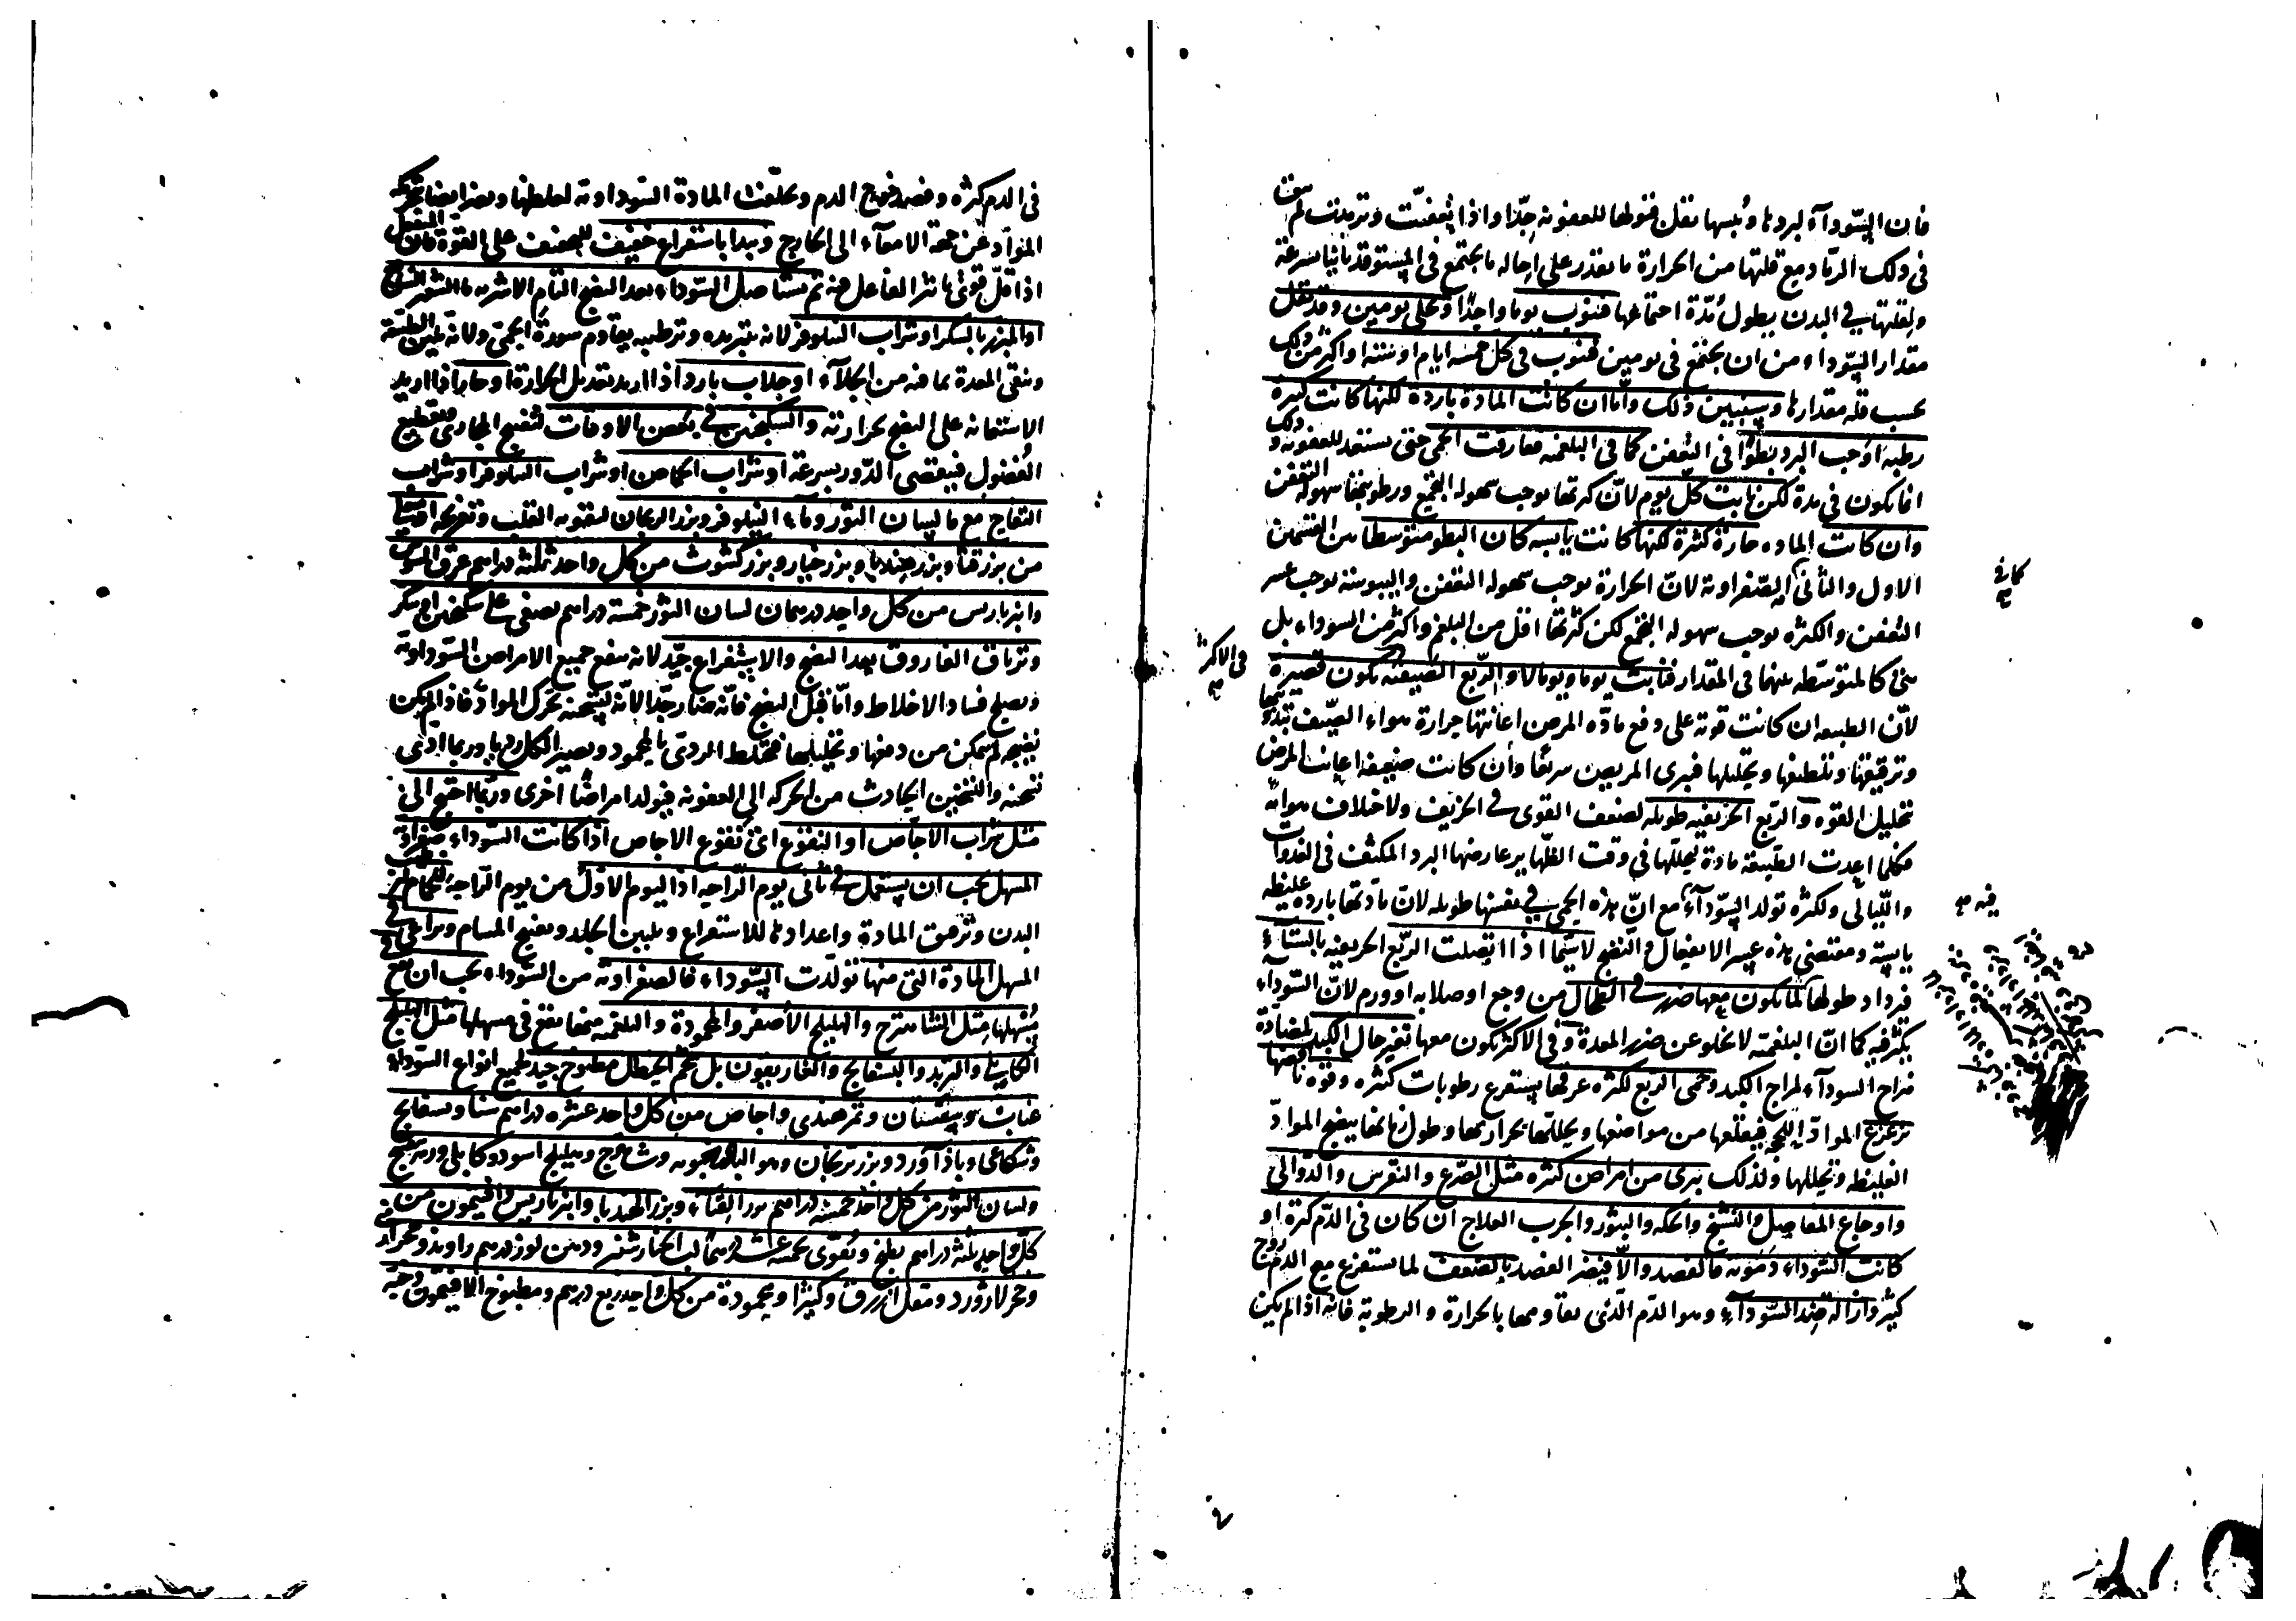 فان السّوداء لبردها ويُبسها تقل قبولها للعفونة جدّا واذا تعفنت وترمدت لم يبق
فى ذلك الرماد مع قلتها من الحرارة ما يقدر على احالة ما يجتمع فى المستوقد ثانيا بسرعة
ولقلتها فى البدن يطول مُدّة اجتماعها فتنوب يوما واحدًا وتخلى يومين وقد تقل
مقدار السّوداء من ان يجتمع فى يومين فتنوب فى كل خمسة ايام او ستة او اكثر من ذلك
بحسب قلة مقدارها وسيتبين ذلك وامّا ان كانت المادة باردة لكنها كانت كثيرة
رطبة اوجب البرد بطؤا فى التعفن كما فى البلغمية ففارقت الحمى حتى تستعد للعفونة وذلك
انما يكون فى مدة لكن نابت كل يوم لانّ كثرتها توجب سهولة التجمع ورطوبتها سهولة التعفن
وان كانت المادة حارة كثيرة لكنها كانت يابسة كان البطو متوسطا بين القسمين
الاول والثانى كما فى الصّفراوية لانّ الحرارة توجب سهولة التعفن واليبوسة توجب عسر
التعفن والكثرة توجب سهولة التجمع لكن كثرتها اقل من البلغم واكثر من السوداء بل
هى كالمتوسّطة بينهما فى المقدار فنابت يوما ويوما لا والرّبع الصّيفية تكون قصيرة فى الاكثر
لانّ الطبيعة ان كانت قوية على دفع مادّة المرض اعانتها حرارة هواء الصّيف بتذويبها
وترقيقها وتلطيفها وتحليلها فيبرى المريض سريعًا وان كانت ضعيفة اعانت المرض
بتحليل القوة والربع الخريفية طويلة لضعف القوى فى الخريف ولاختلاف هوائه
فكلما اعدت الطّبيعة مادة لتحللها فى وقت الظّهاير عارضها البرد المكثف فى الغدوات
واللّيالى ولكثرة تولد السّوداء فيه مع انّ هذه الحمى فى نفسها طويلة لانّ مادتها باردة غليظة
يابسة ومقتضى هذه عسر الانفعال والنضج لاسيّما اذا اتصلت الرّبع الخريفية بالشتاء
فيزداد طولها كما يكون معها ضرر فى الطحال من وجع او صلابة او ورم لانّ السّوداء
يكثر فيه كما انّ البلغمية لا تخلو عن ضرر المعدة وفى الاكثر يكون معها تغير حال الكبد لمضادة
مزاج السوداء لمزاج الكبد وحمى الربع لكثرة عرقها يستفرغ رطوبات كثيرة وقوة نافضها
تزعزع الموادّ اللحجة فيقلعها من مواضعها ويحللها بحرارتها وطول زمانها ينضج الموادّ
الغليظة وتحللها ولذلك يبرى من امراض كثيرة مثل الصّرع والنقرس والدّوالى
واوجاع المفاصل والتشنج والحكه والبثور والجرب العلاج ان كان فى الدّم كثرة او
كانت السّوداء دَمَوية فالفصد والّا فيضر الفصد بالضعف لما يستفرغ مع الدّم روح
كثير وازالة ضد السّوداء وهو الدّم الّذى يقاومها بالحرارة والرطوبة فانه اذا لم يكن
فى الدم كثرة وفصد خرج الدم وتخلّفت المادة السّوداوية لغلظها ويضر ايضا بتحريكه
الموادّ عن جهة الامعاء الى الخارج ويبدا باستفراغ خفيف للضعف على القوة فان المنفعل
اذا قلّ قوى تاثير الفاعل فيه ثم يستاصل السّوداء بعد النضج التام الاشربة ماء الشعير الساذج
او المبزر بالسكر او شراب النيلوفر لانه بتبريده وترطيبه يقاوم سورة الحمّى ولانه يلين الطبيعة
وينقى المعدة بما فيه من الجلاء او جلاب بارد اذا اريد تعديل الحرارة او حار اذا اريد
الاستعانة على النضج بحرارته والسكنجبين فى بعض الاوقات لتفتيح المجارى وتقطيع
الفُضول فينقضى الدّور بسرعة او شراب الحماض او شراب النيلوفر او شراب
التفاح مع ماء لسان الثور وماء النيلوفر وبزر الريحان لتقوية القلب وتفريحه
من بزر قثا وبزر هندبا وبزر خيار وبزر كشوث من كل واحد ثلثة دراهم عرق السوس
وانبرباريس من كل واحد درهمان لسان الثور خمسة دراهم يصفى على سكنجبين او سكر
وترياق الفاروق بعد النضج والاستفراغ جيّد لانه ينفع جميع الامراض السّوداوية
ويصلح فساد الاخلاط وامّا قبل النضج فانّه ضار جدّا لانّه بتسخينه يحرك الموادّ فاذا لم يكن
نضيجة لم يمكن من دفعها وتحليلها فيختلط الردى بالمحمود ويصير الكل رديا وربما ادى
تسخينه والتسخين الحادث من الحركة الى العفونة فيولد امراضًا اخرى وربّما احتيج الى
مثل شراب الاجّاص او النقوع اى نقوع الاجاص اذا كانت السّوداء صفراوية
المسهل يجب ان يستعمل فى ثانى يوم الرّاحة اذ اليوم الاوّل من يوم الرّاحة للحمام لترطيب
البدن وترقيق المادة واعدادها للاستفراغ وتليين الجلد وتفتيح المسام ويراعى فى
المسهل المادة التى منها تولّدت السّوداء فالصفراوية من السّوداء يجب ان يقع فى
مُسهلها مثل الشاهترج والهليلج الاصفر والمحمودة والبلغمية منها يقع فى مسهلها مثل الهليلج
الكابلى والتربد والبسفايج والغاريقون بل شحم الحنظل مطبوخ جيد لجميع انواع السّوداء
عناب وسپستان وتمر هندى واجاص من كل واحد عشرة دراهم سنا وبسفايج
وشكاعى وباذآورد وبزر ريحان وهو البادرنجبويه وشاهترج وهليلج اسود وكابلى
ولسان الثور من كل واحد خمسة دراهم بزر القثاء وبزر الهندبا وانبرباريس وافتيمون من
كل واحد ثلثة دراهم يطبخ ويُقوى بخمسة عشر درهمًا لب الخيارشنبر ودهن لوز درهم راوند وحجر ارمنى
وحجر لازورد ومقل ازرق وكثيرا ومحمودة من كل واحد ربع درهم ومطبوخ الافيتمون وحبّه